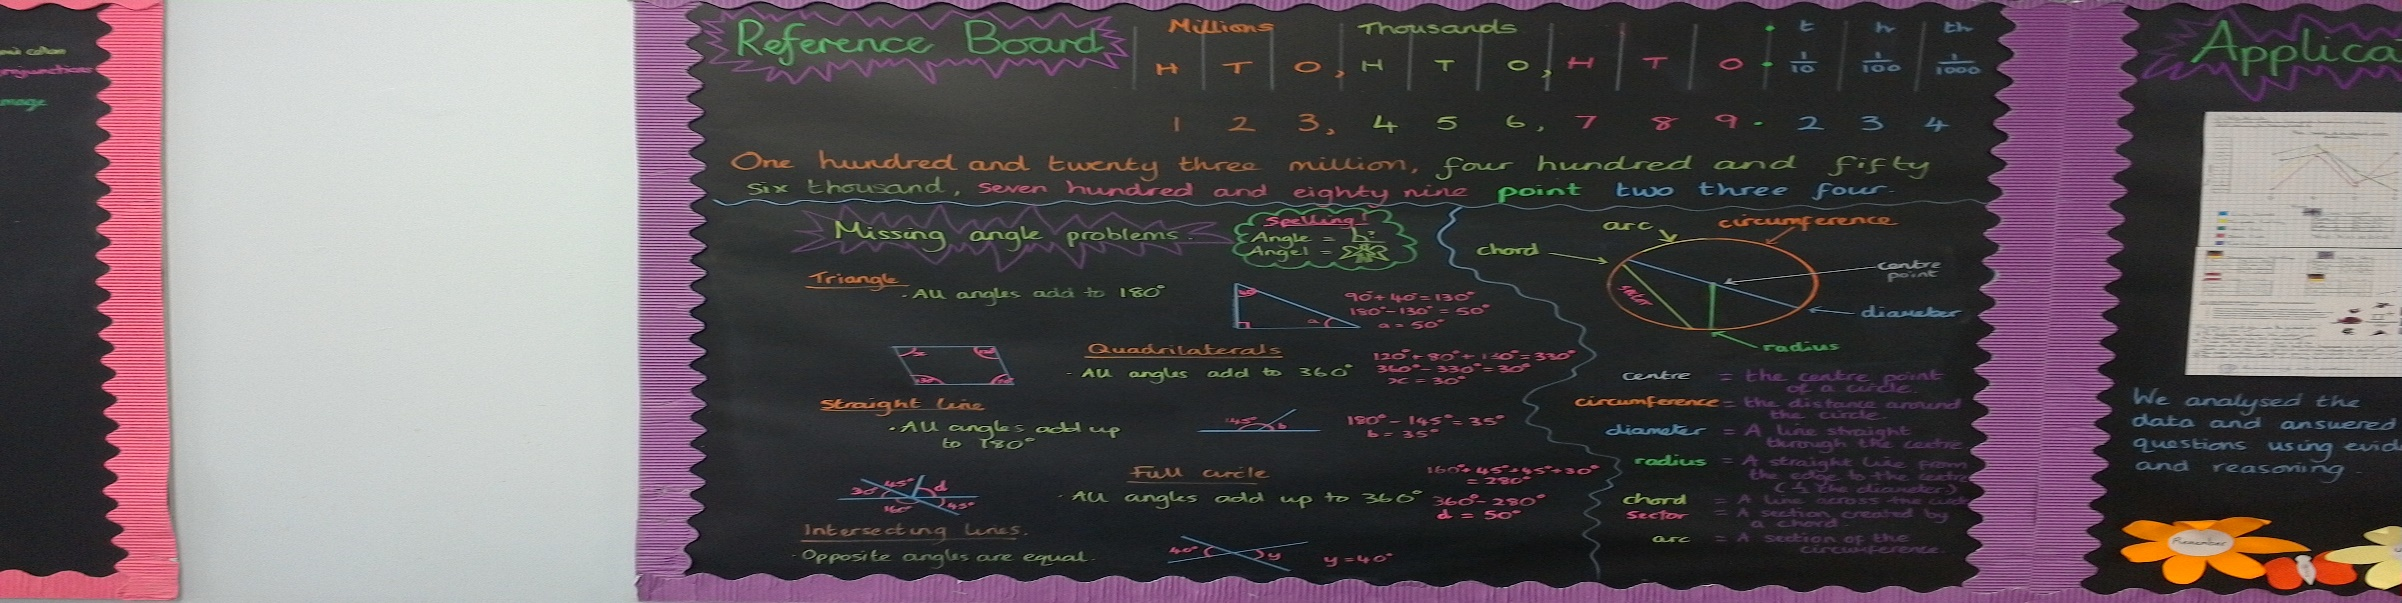 Reference Board
Millions Thousands t h th
H T O, H T O, H T O . 1/10 1/100 1/1000
1 2 3, 4 5 6, 7 8 9 . 2 3 4
One hundred and twenty three million, four hundred and fifty
six thousand, seven hundred and eighty nine point two three four.
Missing angle problems.
Spelling!
Angle =
Angel =
Triangle
· All angles add to 180°
40°
a
90°+40°=130°
180°-130°=50°
a=50°
Quadrilaterals
· All angles add to 360°
x
360°-330°=30°
x=30°
Straight line
· All angles add up
to 180°
145° b
180°-145°=35°
b=35°
Full circle
· All angles add up to 360°
30° 45° d
160° 45°
160°+45°+45°+30°
=280°
360°-280°
d = 50°
Intersecting lines.
· Opposite angles are equal.
40° y
y=40°
arc circumference
chord
centre
point
sector
diameter
radius
centre = the centre point
of a circle.
circumference = the distance around
the circle.
diameter = A line straight
through the centre
radius = A straight line from
the edge to the centre
(½ the diameter)
chord = A line across the circle
sector = A section created by
a chord.
arc = A section of the
circumference.
Applica
We analysed the
data and answered
questions using evid
and reasoning.
Remember